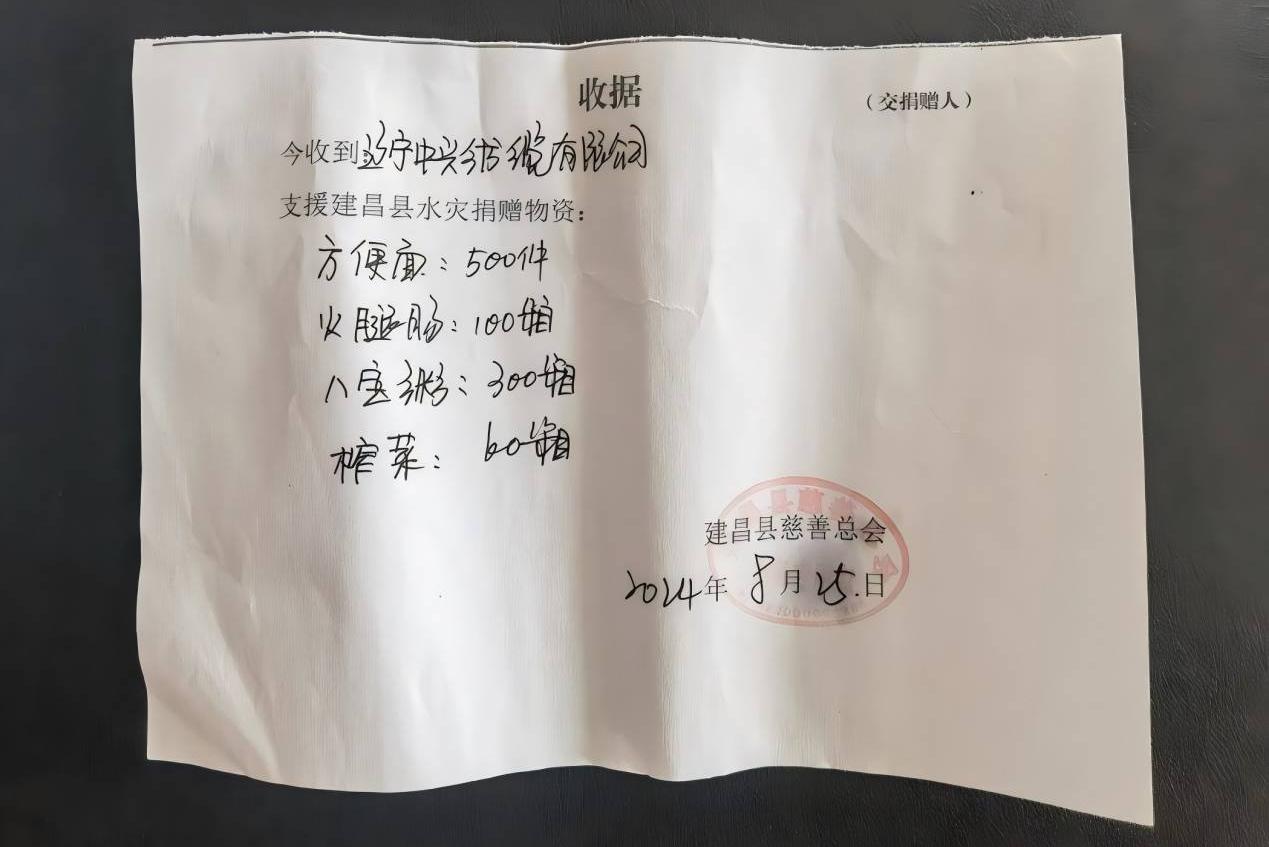 收据
（交捐赠人）
今收到辽宁中兴线缆有限公司
支援建昌县水灾捐赠物资：
方便面：500件
火腿肠：100箱
八宝粥：300箱
榨菜：60箱
建昌县慈善总会
2024年8月25日